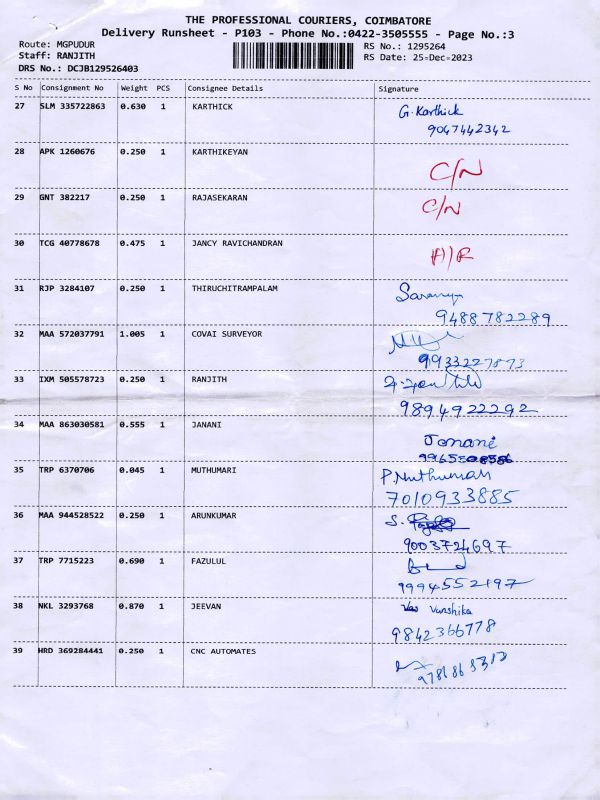 THE PROFESSIONAL COURIERS, COIMBATORE
Delivery Runsheet - P103 - Phone No.:0422-3505555 - Page No.:3
Route: MGPUDUR RS No.: 1295264
Staff: RANJITH RS Date: 25-Dec-2023
DRS No.: DCJB129526403
S No Consignment No Weight PCS Consignee Details Signature
27 SLM 335722863 0.630 1 KARTHICK G. Karthick
9047442342
28 APK 1260676 0.250 1 KARTHIKEYAN C/N
29 GNT 382217 0.250 1 RAJASEKARAN C/N
30 TCG 40778678 0.475 1 JANCY RAVICHANDRAN A/R
31 RJP 3284107 0.250 1 THIRUCHITRAMPALAM Saranya
9488782289
32 MAA 572037791 1.005 1 COVAI SURVEYOR
9933227873
33 IXM 505578723 0.250 1 RANJITH
9894922292
34 MAA 863030581 0.555 1 JANANI Janani
35 TRP 6370706 0.045 1 MUTHUMARI P. Muthumari
7010933885
36 MAA 944528522 0.250 1 ARUNKUMAR S.
9003724697
37 TRP 7715223 0.690 1 FAZULUL
9994552197
38 NKL 3293768 0.870 1 JEEVAN Vanshika
9842366778
39 HRD 369284441 0.250 1 CNC AUTOMATES